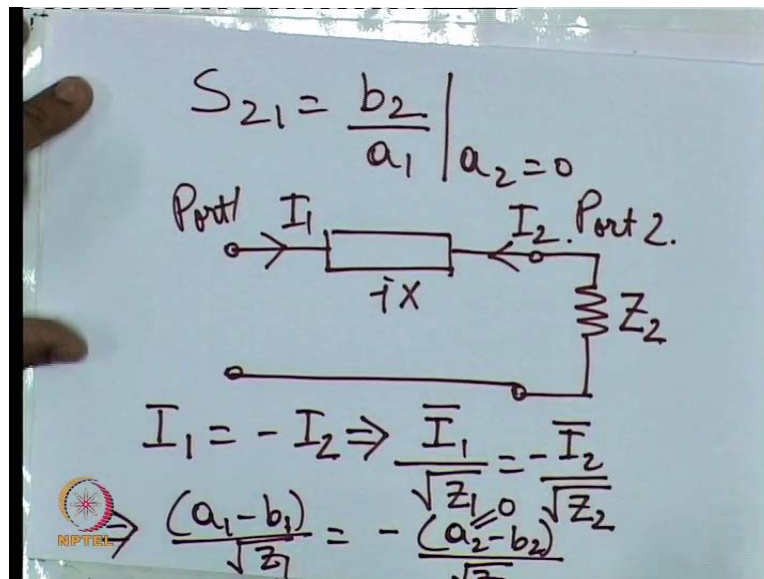 S₂₁ = b₂/a₁ |a₂=0
Port1 I₁ I₂ . Port 2.
jX
Z₂
I₁ = - I₂ ⇒ Ī₁/√Z₁ = - Ī₂/√Z₂
⇒ (a₁-b₁)/√Z₁ = - (a₂-b₂)/√Z
0
NPTEL